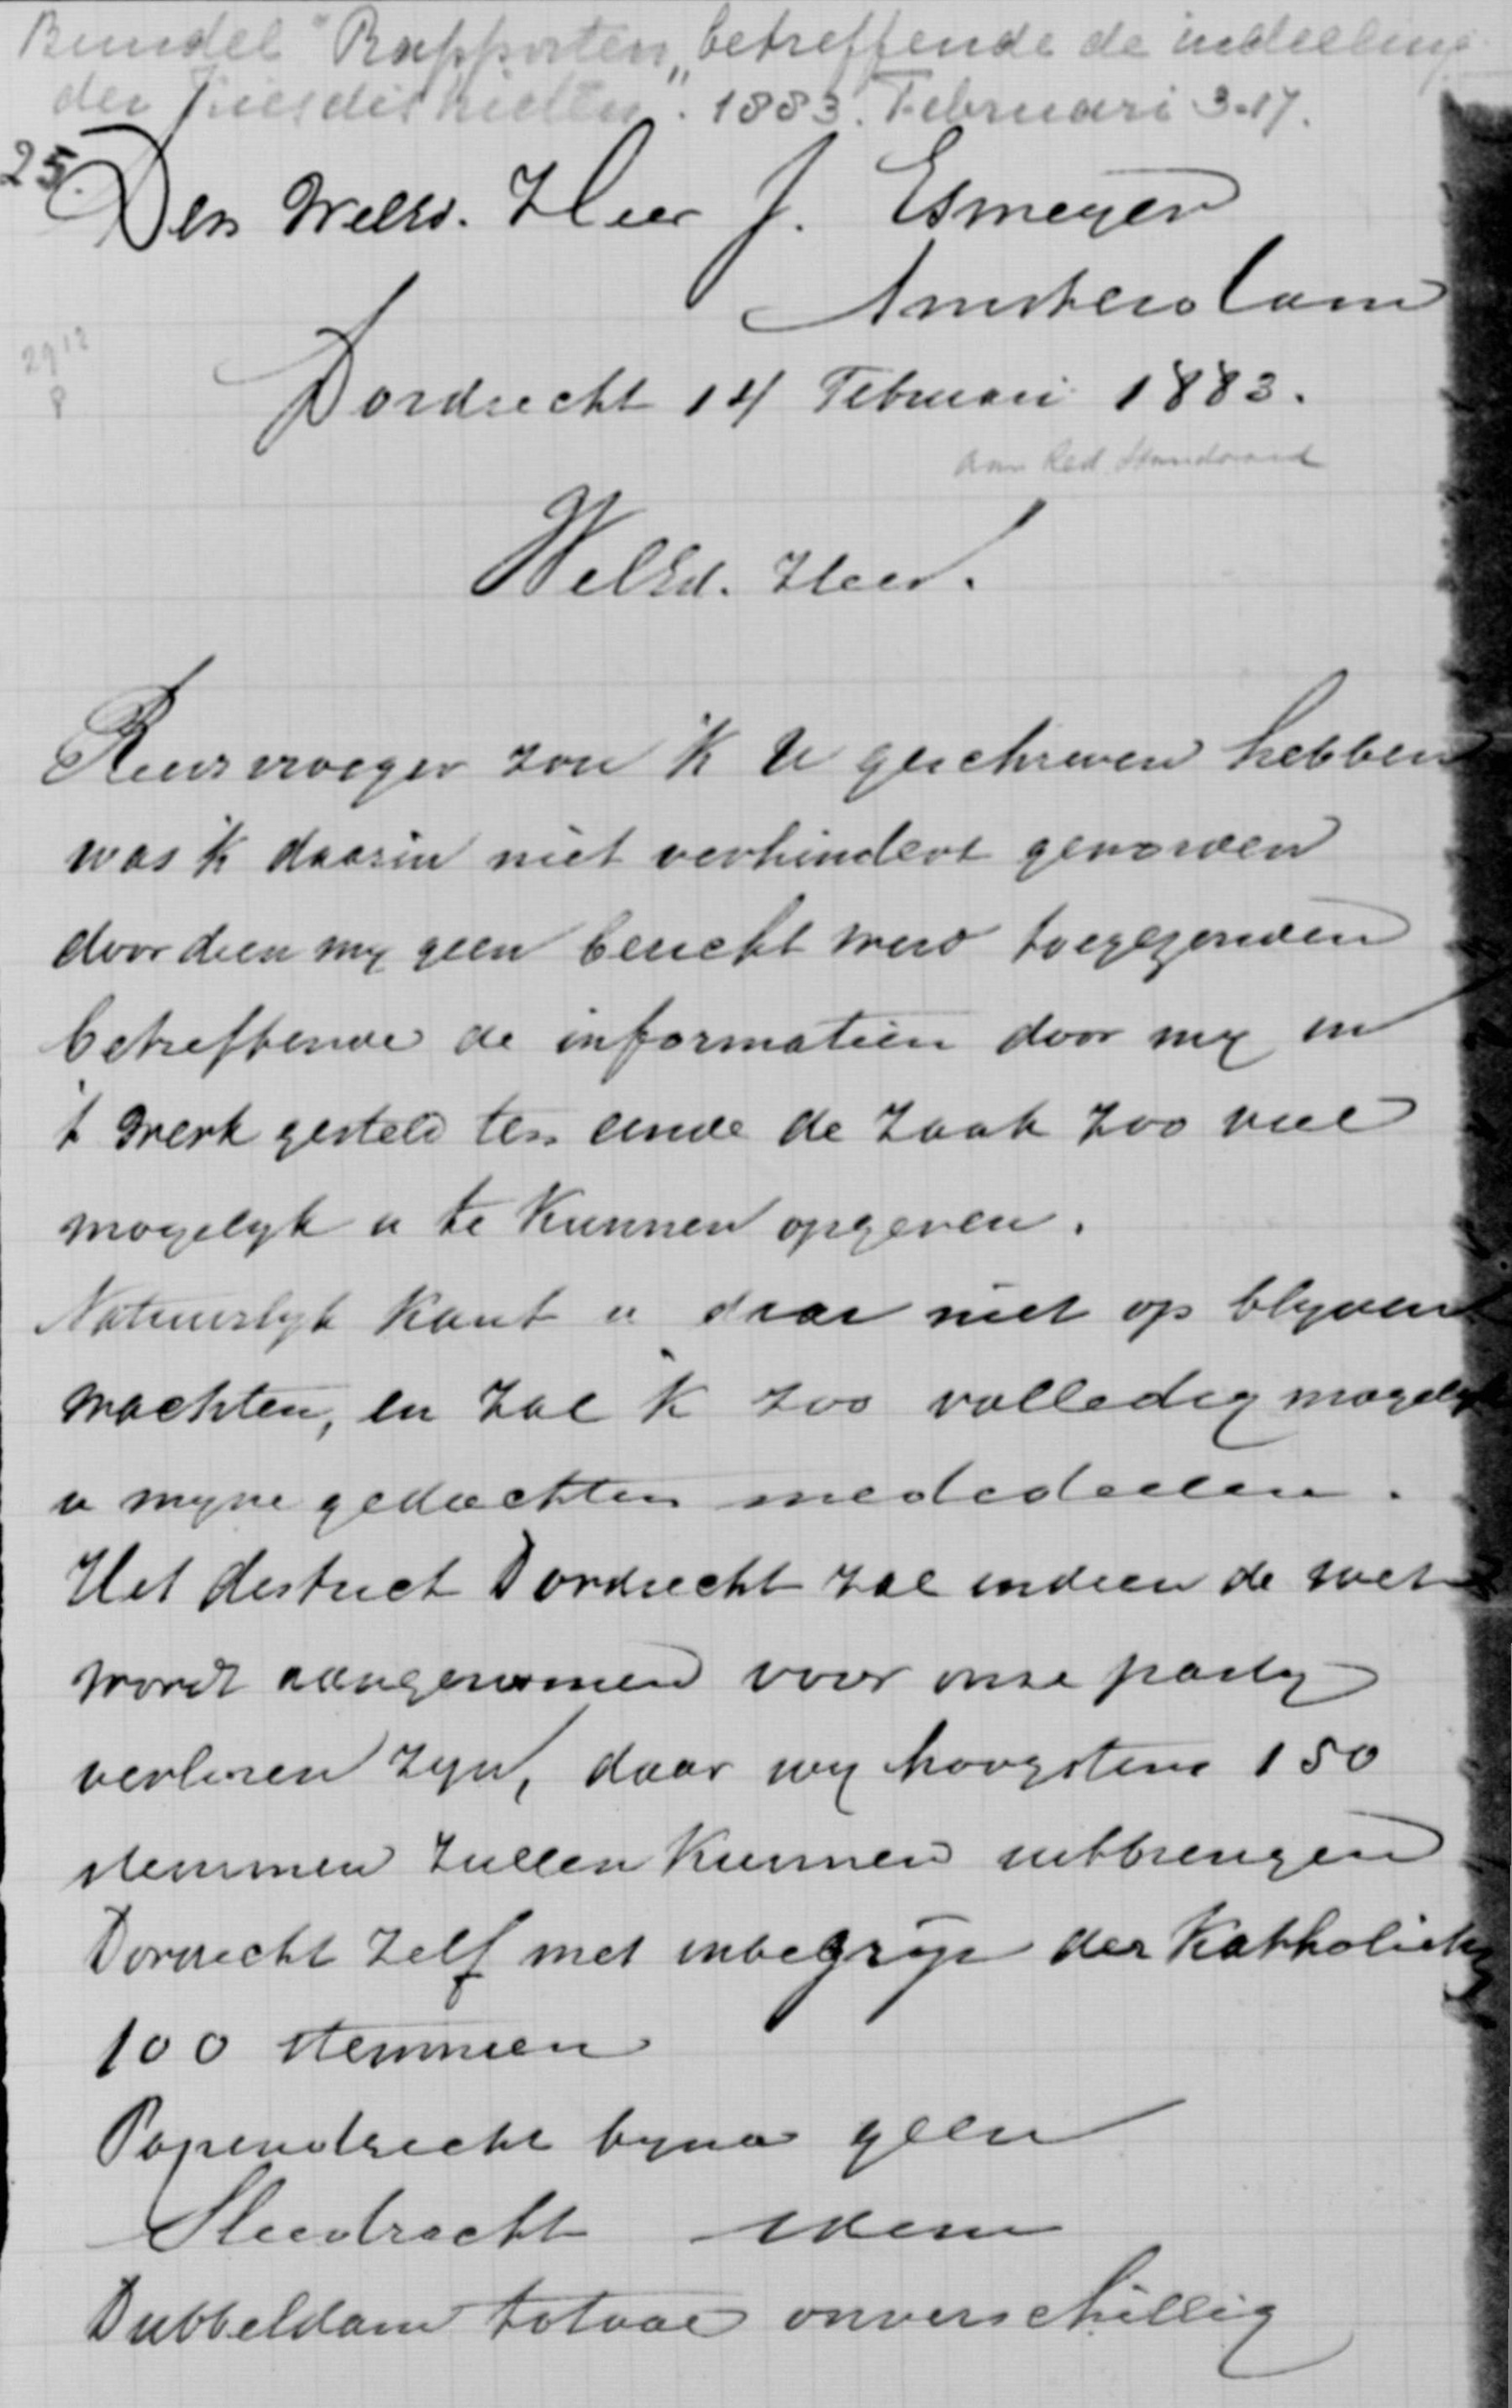 Bundel "Rapporten" betreffende de indeeling
der Kiesdistricten". 1883. Februari 3-17.
25.
Den WelEd. Heer J. Esmeyer
Amsterdam
2912
8
Dordrecht 14 Februari 1883.
aan Red Standaard
WelEd. Heer!
Reeds vroeger zou 'k U geschreven hebben
was 'k daarin niet verhinderd geworden
door dien my geen bericht werd toegezonden
betreffende de informatien door my in
't werk gesteld ten einde de zaak zoo veel
mogelyk u te kunnen opgeven.
Natuurlyk kunt u daar niet op blyven
wachten, en zal 'k zoo volledig mogelyk
u myne gedachten mededeelen.
Het district Dordrecht zal indien de wet
wordt aangenomen voor onze party
verloren zyn, daar wy hoogstens 150
stemmen zullen kunnen uitbrengen
Dordrecht zelf met inbegrip der Katholieken
100 stemmen
Papendrecht byna geen
Sliedrecht idem
Dubbeldam totaal onverschillig